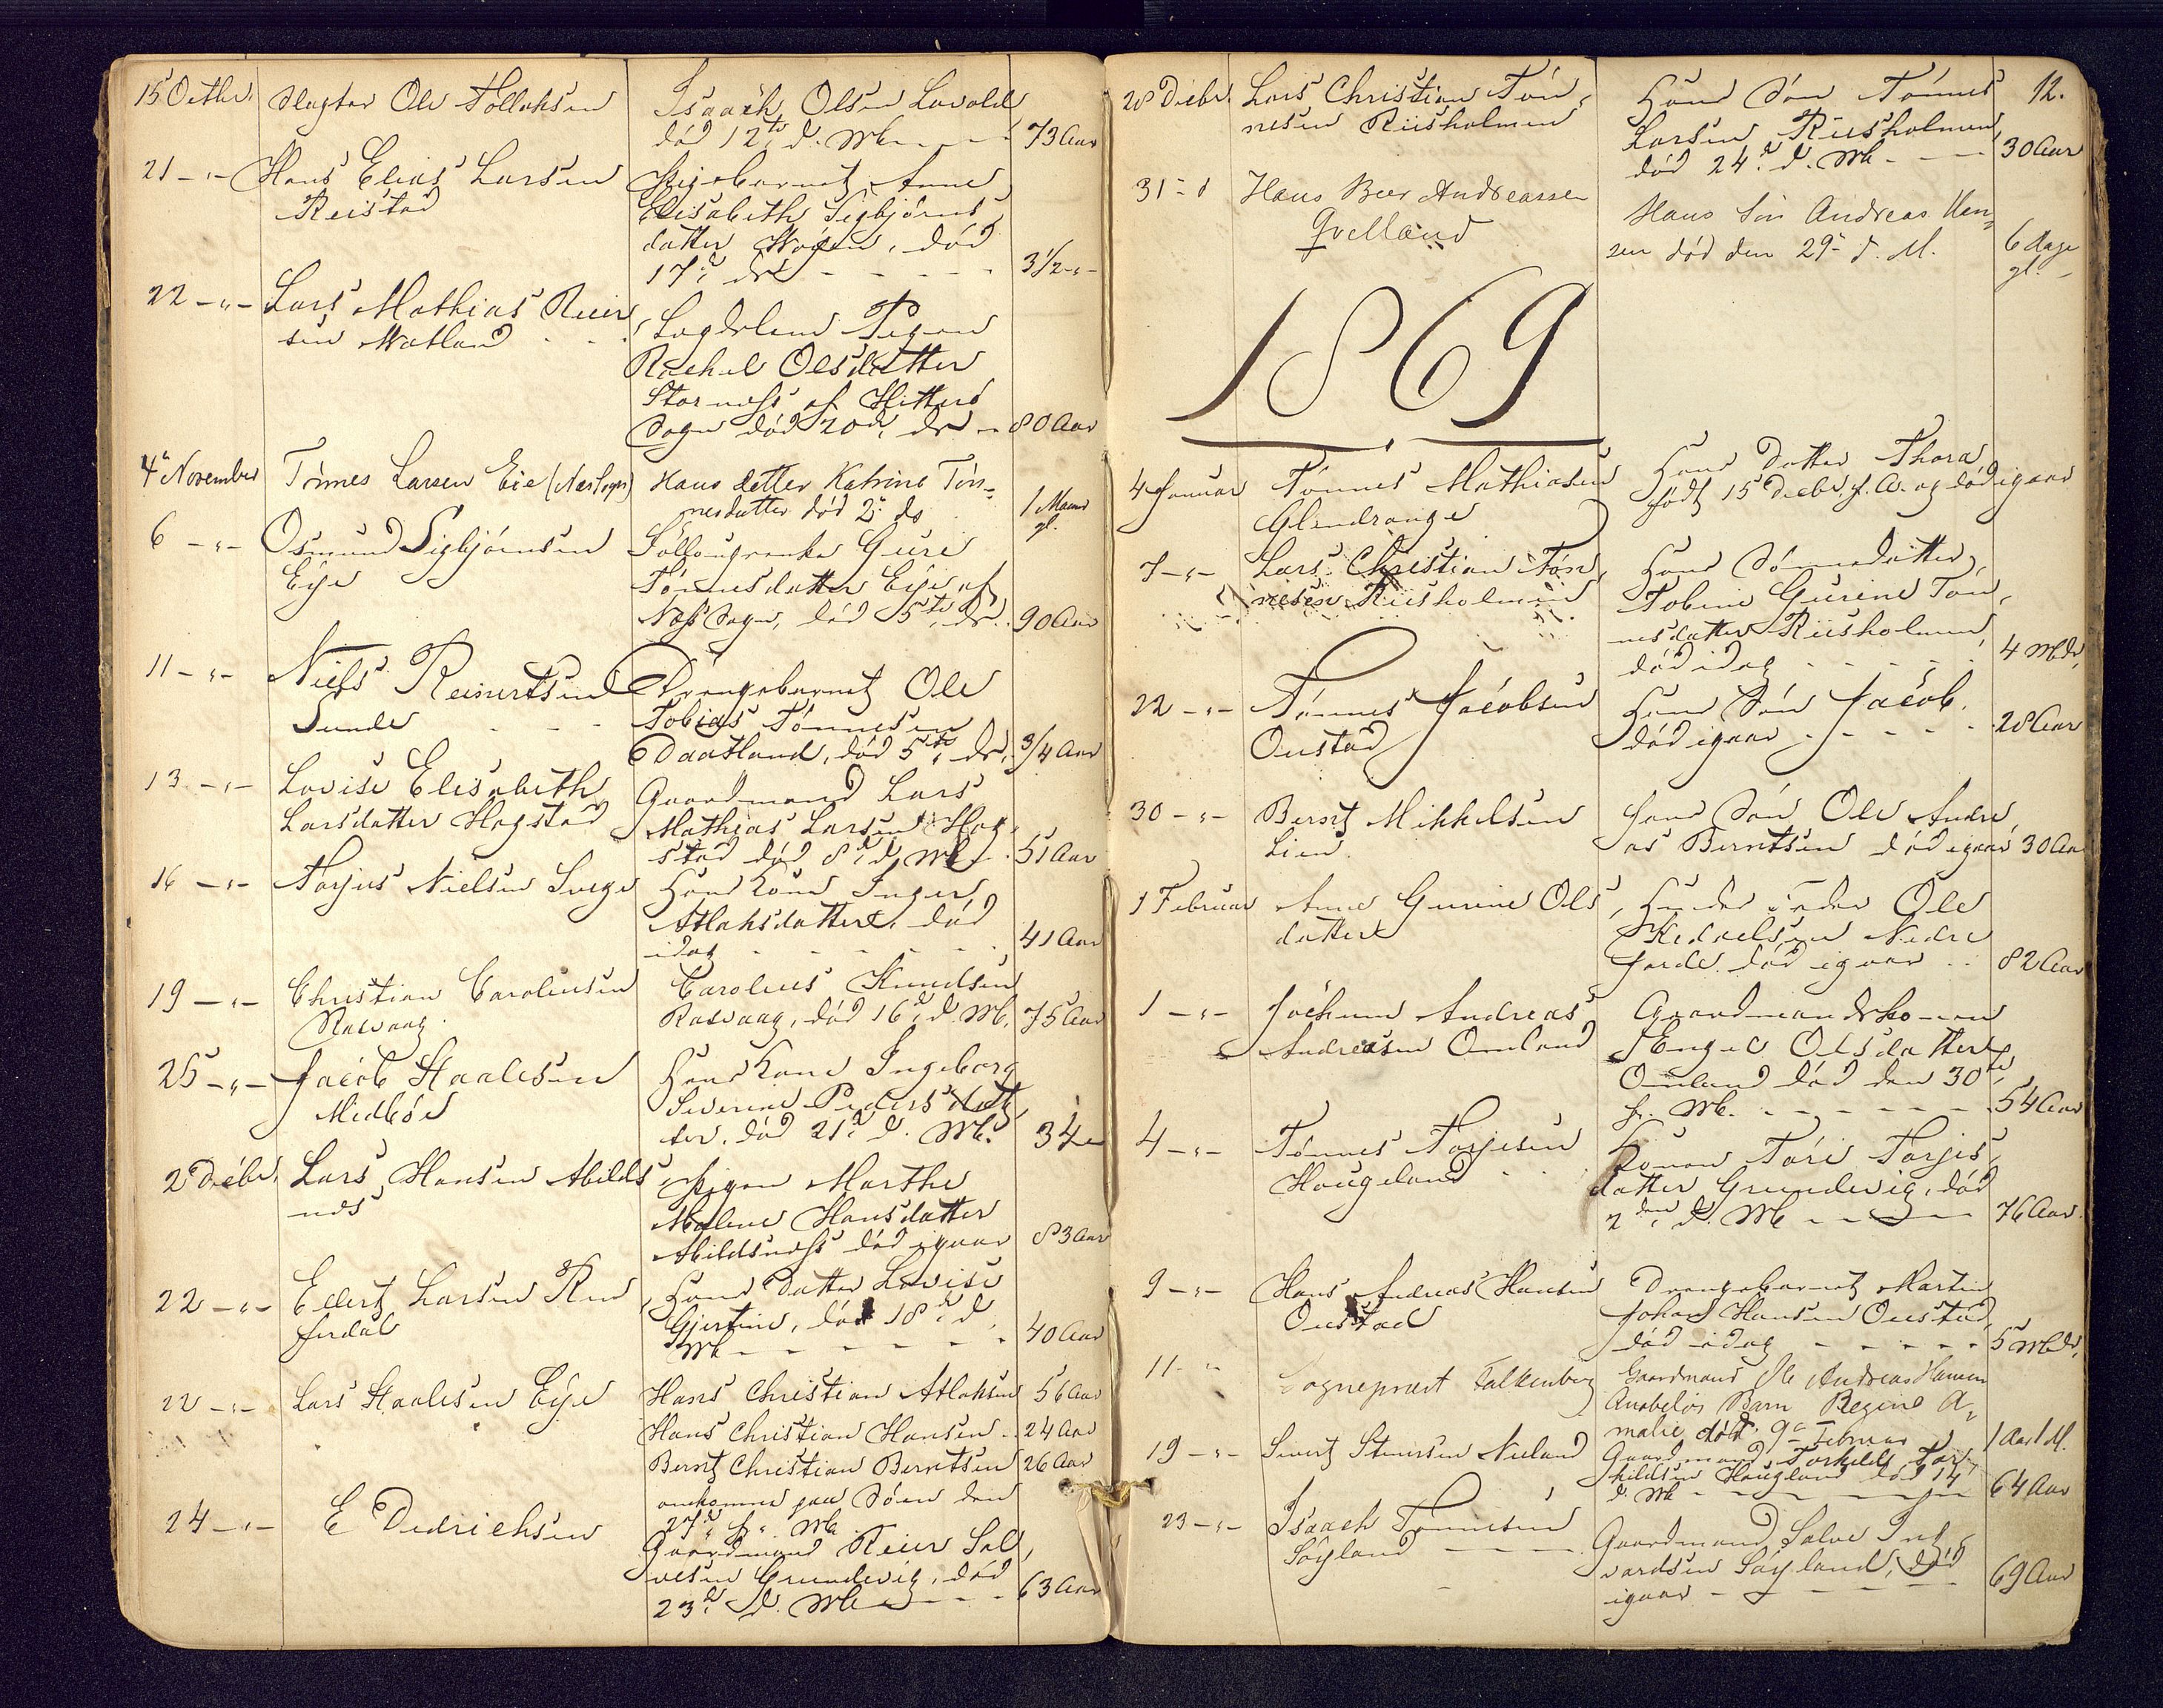 15 Octbr. Ole Tollaksen
Isaach Olsen Lavold
død 12te d. Mk. 73 Aar
21 -"- Hans Elias Larsen
Reistad
Pigebarnet Anne
Elisabeth Sigbjørns
datter død
17d ds 3 1/2 -"-
22 -"- Lars Mathias Reier
sen Watland
Lægdslem Pigen
Rachel Olsdatter
Stornæss af Hitterø
Sogn død 20d. ds. 80 Aar
4 November Tönnes Larsen Eie (Næs Sogn)
Hans datter Katrine Tön-
nesdatter død 2 ds 1 Maaned
gl.
6 -"- Osmund Sigbjörnsen
Eije
Guri
Tönnesdatter Eije af
Næs Sogn, død 5te ds. 90 Aar
11 -"- Niels Reinertsen
Sunde
Drengebarnet Ole
Tobias Tönnesen
Daatland, død 5te ds. 3/4 Aar
13 -"- Lovise Elisabeth
Larsdatter Hogstad
Gaardmand Lars
Mathias Larsen Hog,
stad død 8d d. Mk. 51 Aar
16 -"- Torjus Nielsen Svege
Hans Kone Inger
Atlaksdatter, død
idag 41 Aar
19 -"- Christian Carolinsen
Rasvaag
Carolus Knudsen
Rasvaag, død 16d d. Mk. 75 Aar
25 -"- Jacob Staalesen
Midbøe
Hans Kone Ingeborg
Severine Peders dat
ter, død 21d d. Mk. 34 -"-
2 Decbr. Lars Hansen Abilds
næs
Pigen Marthe
Malene Hansdatter
Abildsnæss død igaar 83 Aar
22 -"- Edert Larsen Rød
ferdal
Hans Datter Lovise
Gjertine, død 18d d.
Mk 40 Aar
22 -"- Lars Staalesen Eije
Hans Christian Atlaksen 56 Aar
Hans Christian Hansen 24 Aar
Bernt Christian Berntsen 26 Aar
omkomne paa Søen den
27d f. Mk.
24 -"- E Diedrichsen
Gaardmand Reier Sal,
vesen Grundevig, død
23d d. Mk 63 Aar
12.
28 Decbr. Lars Christian Tön,
nesen Riisholmen
Hans Søn Tönnes
Larsen Riisholmen,
død 24d d. Mk 30 Aar
31 -" Hans Beer Andreassen
Qvelland
Hans Søn Andreas Han-
sen død den 29 d. M. 6 dage
gl.
1869
4 Januar Tönnes Mathiasen
Glendrange
Hans Datter Thora
født 15 Decbr. f. A. og død igaar
7 -"- Lars Christian Tön,
nesen Riisholmen
Hans Sønnedatter,
Tobine Gurine Tön,
nesdatter Riisholmen,
død idag 4 Mdr.
22 -"- Tönnes Jacobsen
Oustad
Hans Søn Jacob,
død igaar 28 Aar
30 -"- Bernt Mikkelsen
Lien
Hans Søn Ole Andre
as Berntsen død igaar 30 Aar
1 Februar Anne Gurine Ols,
datter
Hendes Fader Ole
Kedelsen Nedre
Fjorde død igaar 82 Aar
1 -"- Jochum Andreas
Andreasen Omland
Gaardmandskonen
Engel Olsdatter
Omland død den 30te
f. Mk. 54 Aar
4 -"- Tönnes Torjesen
Hougeland
Konen Tori Torjes,
datter Grundevig, død
2den d. Mk 76 Aar
9 -"- Hans Andreas Hansen
Oustad
Drengebarnet Martin
Johan Hansen Oustad,
død idag 5 Mdr.
11 -"- Sognepræst Falkenberg
Gaardmand Ole Andreas Hansen
Anabeløs Barn Regine A-
malie død 9 Februar 1 Aar 1 M.
19 -"- Sivert Steensen Nuland
Gaardmand Torkild Tor
kildsen Hougland død 14
d. Mk 64 Aar
23 -"- Isaach Tönnesen
Søyland
Gaardmand Salve Ing
vardsen Søyland, død
igaar 69 Aar